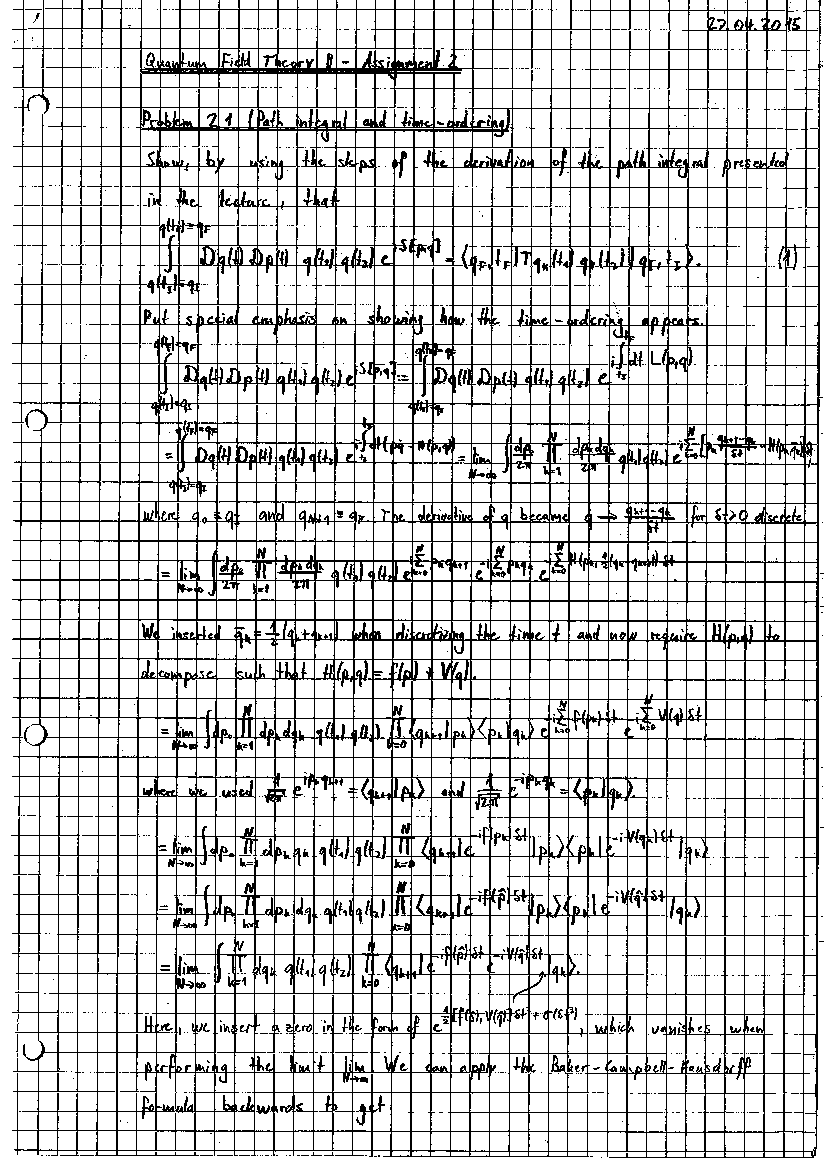 27.04.2015
Quantum Field Theory II - Assignment 2
Problem 2.1 (Path integral and time-ordering)
Show, by using the steps of the derivation of the path integral presented
in the lecture, that
∫_{q(t_I)=q_I}^{q(t_F)=q_F} Dq(t) Dp(t) q(t₁) q(t₂) e^{iS[p,q]} = ⟨q_F, t_F| T q_H(t₁) q_H(t₂) |q_I, t_I⟩. (1)
Put special emphasis on showing how the time-ordering appears.
∫_{q(t_I)=q_I}^{q(t_F)=q_F} Dq(t) Dp(t) q(t₁) q(t₂) e^{iS[p,q]} = ∫_{q(t_I)=q_I}^{q(t_F)=q_F} Dq(t) Dp(t) q(t₁) q(t₂) e^{i∫_{t_I}^{t_F} dt L(p,q)}
= ∫_{q(t_I)=q_I}^{q(t_F)=q_F} Dq(t) Dp(t) q(t₁) q(t₂) e^{i∫_{t_I}^{t_F} dt (p q̇ - H(p,q))} = lim_{N→∞} ∫ dp₀/2π ∏_{k=1}^{N} dp_k dq_k/2π q(t₁) q(t₂) e^{i∑_{k=0}^{N} [p_k (q_{k+1}-q_k)/δt - H(p_k,q̄_k)]δt}
where q₀ ≡ q_I and q_{N+1} ≡ q_F. The derivative of q became q̇ → (q_{k+1}-q_k)/δt for δt>0 discrete.
= lim_{N→∞} ∫ dp₀/2π ∏_{k=1}^{N} dp_k dq_k/2π q(t₁) q(t₂) e^{i∑_{k=0}^{N} p_k q_{k+1}} e^{-i∑_{k=0}^{N} p_k q_k} e^{-i∑_{k=0}^{N} H(p_k, ½(q_k+q_{k+1})) δt}.
We inserted q̄_k = ½(q_k+q_{k+1}) when discretizing the time t and now require H(p,q) to
decompose such that H(p,q) = f(p) + V(q).
= lim_{N→∞} ∫ dp₀ ∏_{k=1}^{N} dp_k dq_k q(t₁) q(t₂) ∏_{k=0}^{N} ⟨q_{k+1}|p_k⟩⟨p_k|q_k⟩ e^{-i∑_{k=0}^{N} f(p_k) δt} e^{-i∑_{k=0}^{N} V(q̄) δt}
where we used 1/√2π e^{ip_k q_{k+1}} = ⟨q_{k+1}|p_k⟩ and 1/√2π e^{-ip_k q_k} = ⟨p_k|q_k⟩.
= lim_{N→∞} ∫ dp₀ ∏_{k=1}^{N} dp_k q_k q(t₁) q(t₂) ∏_{k=0}^{N} ⟨q_{k+1}| e^{-if(p_k)δt} |p_k⟩⟨p_k| e^{-iV(q_k)δt} |q_k⟩
= lim_{N→∞} ∫ dp₀ ∏_{k=1}^{N} dp_k dq_k q(t₁) q(t₂) ∏_{k=0}^{N} ⟨q_{k+1}| e^{-if(p̂)δt} |p_k⟩⟨p_k| e^{-iV(q̂)δt} |q_k⟩
= lim_{N→∞} ∫ ∏_{k=1}^{N} dq_k q(t₁) q(t₂) ∏_{k=0}^{N} ⟨q_{k+1}| e^{-if(p̂)δt} e^{-iV(q̂)δt} |q_k⟩.
Here, we insert a zero in the form of e^{½[f(p̂),V(q̂)]δt² + O(δt³)}, which vanishes when
performing the limit lim_{N→∞}. We can apply the Baker-Campbell-Hausdorff
formula backwards to get